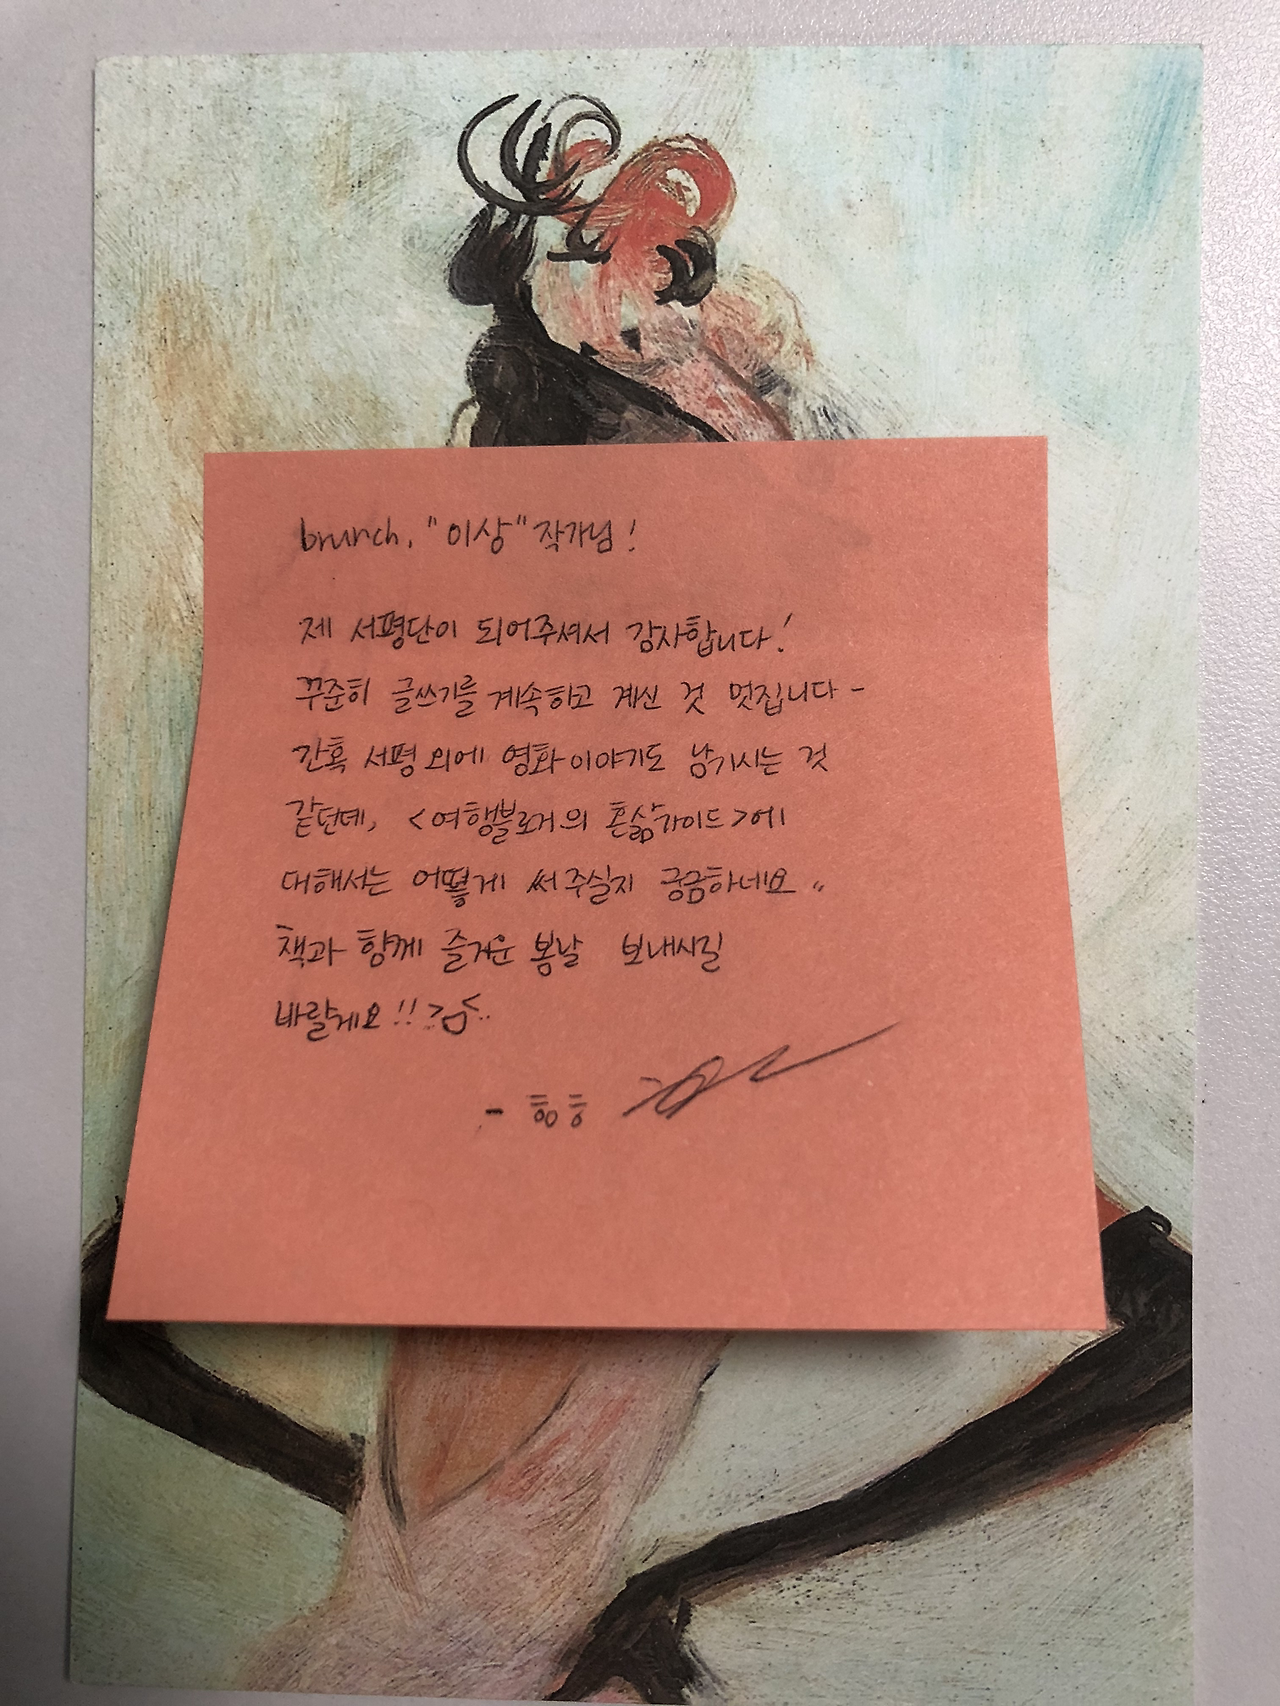 brunch, "이상" 작가님!
제 서평단이 되어주셔서 감사합니다!
꾸준히 글쓰기를 계속하고 계신 것 멋집니다 -
간혹 서평 외에 영화 이야기도 남기시는 것
같던데, <여행블로거의 혼삶가이드>에
대해서는 어떻게 써주실지 궁금하네요 ..
책과 함께 즐거운 봄날 보내시길
바랄게요!!
-